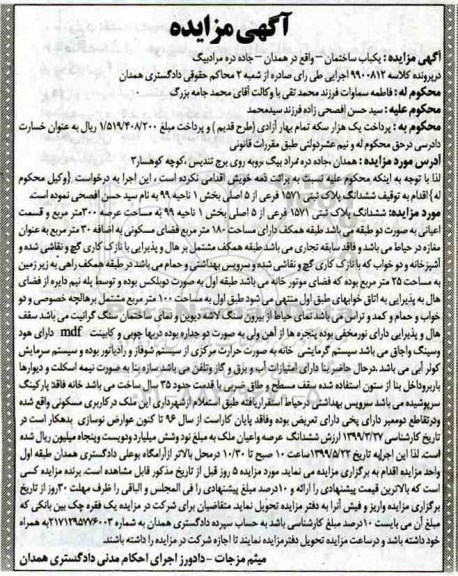 آگهی مزایده
آگهی مزایده : یکباب ساختمان – واقع در همدان – جاده دره مرادبیگ
درپرونده کلاسه ۹۹۰۰۸۱۲ اجرایی طی رای صادره از شعبه ۲ محاکم حقوقی دادگستری همدان
محکوم له : فاطمه سماوات فرزند محمد تقی با وکالت آقای محمد جامه بزرگ
محکوم علیه : سید حسن افصحی زاده فرزند سیدمحمد
محکوم به : پرداخت یک هزار سکه تمام بهار آزادی (طرح قدیم) و پرداخت مبلغ ۱/۵۱۹/۳۰۸/۲۰۰ ریال به عنوان خسارت
دادرسی درحق محکوم له و نیم عشردولتی طبق مقررات قانونی
آدرس مورد مزایده : همدان ،جاده دره مراد بیگ ،روبه روی برج تندیس ،کوچه کوهسار۳
لذا با توجه به اینکه محکوم علیه نسبت به برائت ذمه خویش اقدامی نکرده است ، این اجرا به درخواست (وکیل محکوم
له )اقدام به توقیف ششدانگ پلاک ثبتی ۱۵۷۱ فرعی از ۵ اصلی بخش ۱ ناحیه ۹۹ به نام سید حسن افصحی نموده است.
مورد مزایده: ششدانگ پلاک ثبتی ۱۵۷۱ فرعی از ۵ اصلی بخش ۱ ناحیه ۹۹ به مساحت عرصه ۳۰۰متر مربع و قسمت
اعیانی به صورت دو طبقه می باشد طبقه همکف دارای مساحت ۱۸۰ متر مربع فضای مسکونی به اضافه ۳۰ متر مربع به عنوان
مغازه در حیاط می باشد و فاقد سابقه تجاری می باشدطبقه همکف مشتمل بر هال و پذیرایی با نازک کاری گچ و نقاشی شده و
آشپزخانه و دو خواب که با نازک کاری گچ و نقاشی شده و سرویس بهداشتی و حمام می باشد در طبقه همکف راهی به زیر زمین
به مساحت ۲۵ متر مربع بوده که فضای موتور خانه می باشد طبقه اول به صورت دوبلکس بوده و توسط پله نیم دایره از فضای
هال به پذیرایی به اتاق خوابهای طبق اول منتهی می شود طبق اول به مساحت ۱۰۰ متر مربع مشتمل برهالچه خصوصی و دو
خواب و حمام و کمد و تراس می باشد نمای حیاط از بیرون سنگ لاشه دیوین و نمای ساختمان سنگ گرانیت می باشد سقف
هال و پذیرایی دارای نورمخفی بوده پنجره ها از آهن ولی به صورت دو جداره بوده دربها چوبی و کابینت mdf دارای هود
وسینگ واجاق می باشد سیستم گرمایشی خانه به صورت حرارت مرکزی از سیستم شوفاژ و رادیاتور بوده و سیستم سرمایش
کولر آبی می باشد .درحال حاضر بنا دارای امتیازات آب و برق و گاز وتلفن می باشد سازه بنا به صورت نیمه اسکلت و دیوارها
باربرو داخل بنا از ستون استفاده شده سقف مسطح و طاق ضربی با قدمت حدود ۳۵ سال ساخت می باشد خانه فاقد پارکینگ
سرپوشیده می باشد سرویس بهداشتی درحیاط استقراریافته طبق استعلام ازشهرداری این ملک در کاربری مسکونی واقع شده
ودرتقاطع دومعبر دارای پخی دارای تعریض بوده وفاقد پایان کاراست از سال ۹۶ تا کنون عوارض نوسازی بدهکار است در
تاریخ کارشناسی ۱۳۹۹/۳/۲۷ ارزش ششدانگ عرصه واعیان ملک به مبلغ نود وشش میلیارد ودویست وپنجاه میلیون ریال شده
است. لذا این اجرابه تاریخ ۱۳۹۹/۵/۲۲ ساعت ۱۰ صبح تا ۱۰/۳۰ درمحل بالاتر ازآرامگاه بوعلی دادگستری همدان طبقه اول
واحد مزایده اقدام به برگزاری مزایده می نماید. مورد مزایده ۵ روز قبل از تاریخ مذکور قابل مشاهده است. برنده مزایده کسی
است که بالاترین قیمت پیشنهادی را ارائه و ۱۰درصد مبلغ پیشنهادی را فی المجلس و الباقی را ظرف مهلت ۳۰روز از تاریخ
برگزاری مزایده واریز و فیش آنرا به دفتر مزایده تحویل نماید. متقاضیان برای شرکت در مزایده یک فقره چک بین بانکی که
مبلغ آن می بایست ۱۰درصد مبلغ کارشناسی باشد به حساب سپرده دادگستری همدان به شماره ۲۱۷۱۲۹۵۷۷۶۰۰۳به همراه
خود داشته باشد و درساعت مزایده تحویل دفترمزایده نمایند تا اجازه شرکت در مزایده را داشته باشند.
میثم مزجات – دادورز اجرای احکام مدنی دادگستری همدان